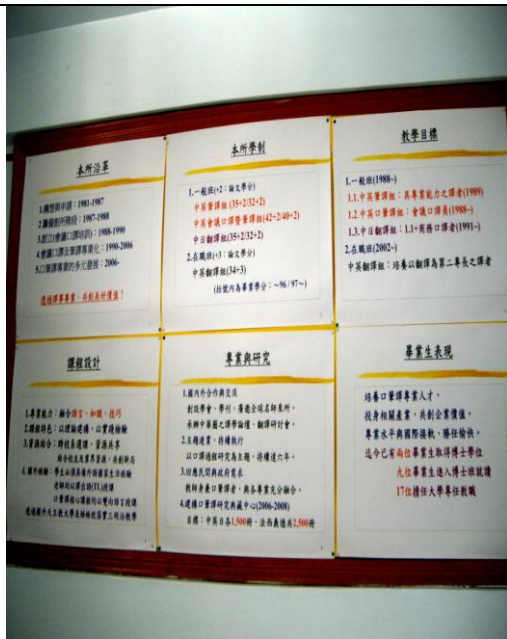 本所沿革
1.構想與申請:1981-1987
2.籌備創所階段:1987-1988
3.創立(會議口譯培訓):1988-1990
4.會議口譯及筆譯專業化:1990-2006
5.口筆譯專業的多元發展:2006-
本所學制
1.一般班(+2:論文學分)
中英筆譯組(35+2/32+2)
中英會議口譯暨筆譯組(42+2/40+2)
中日翻譯組(35+2/32+2)
2.在職班(+3:論文學分)
中英翻譯組(34+3)
(括號內為畢業學分:~96/97~)
教學目標
1.一般班(1988~)
1.1.中英筆譯組:具專業能力之譯者(1989)
1.2.中英口譯組:會議口譯員(1988~)
1.3.中日翻譯組:1.1+商務口譯者(1991~)
2.在職班(2002~)
中英翻譯組:培養以翻譯為第二專長之譯者
課程設計
1.專業能力:融合語言、知識、技巧
2.課程特色:以理論建構,以實踐檢驗
3.資源結合:跨校系選課,資源共享
結合校友及業界資源,共創新局
老師均以譯出語(TL)授課
專業與研究
1.國內外合作與交流
創設學會、學刊,廣邀全球名師來所。
承辦中華圈之譯學論壇、翻譯研討會。
2.主題進業,持續執行
以口譯過程研究為主題,持續達六年。
3.回應民間與政府需求
教師身兼口筆譯者,與各專業充分融合。
4.建構口筆譯研究典藏中心(2006-2008)
目標:中英日各1,500冊,法西義德共2,500冊
畢業生表現
培養口筆譯專業人才,
投身相關產業,共創企業價值。
專業水平與國際接軌,勝任愉快。
迄今已有兩位畢業生取得博士學位
九位畢業生進入博士班就讀
17位擔任大學專任教職